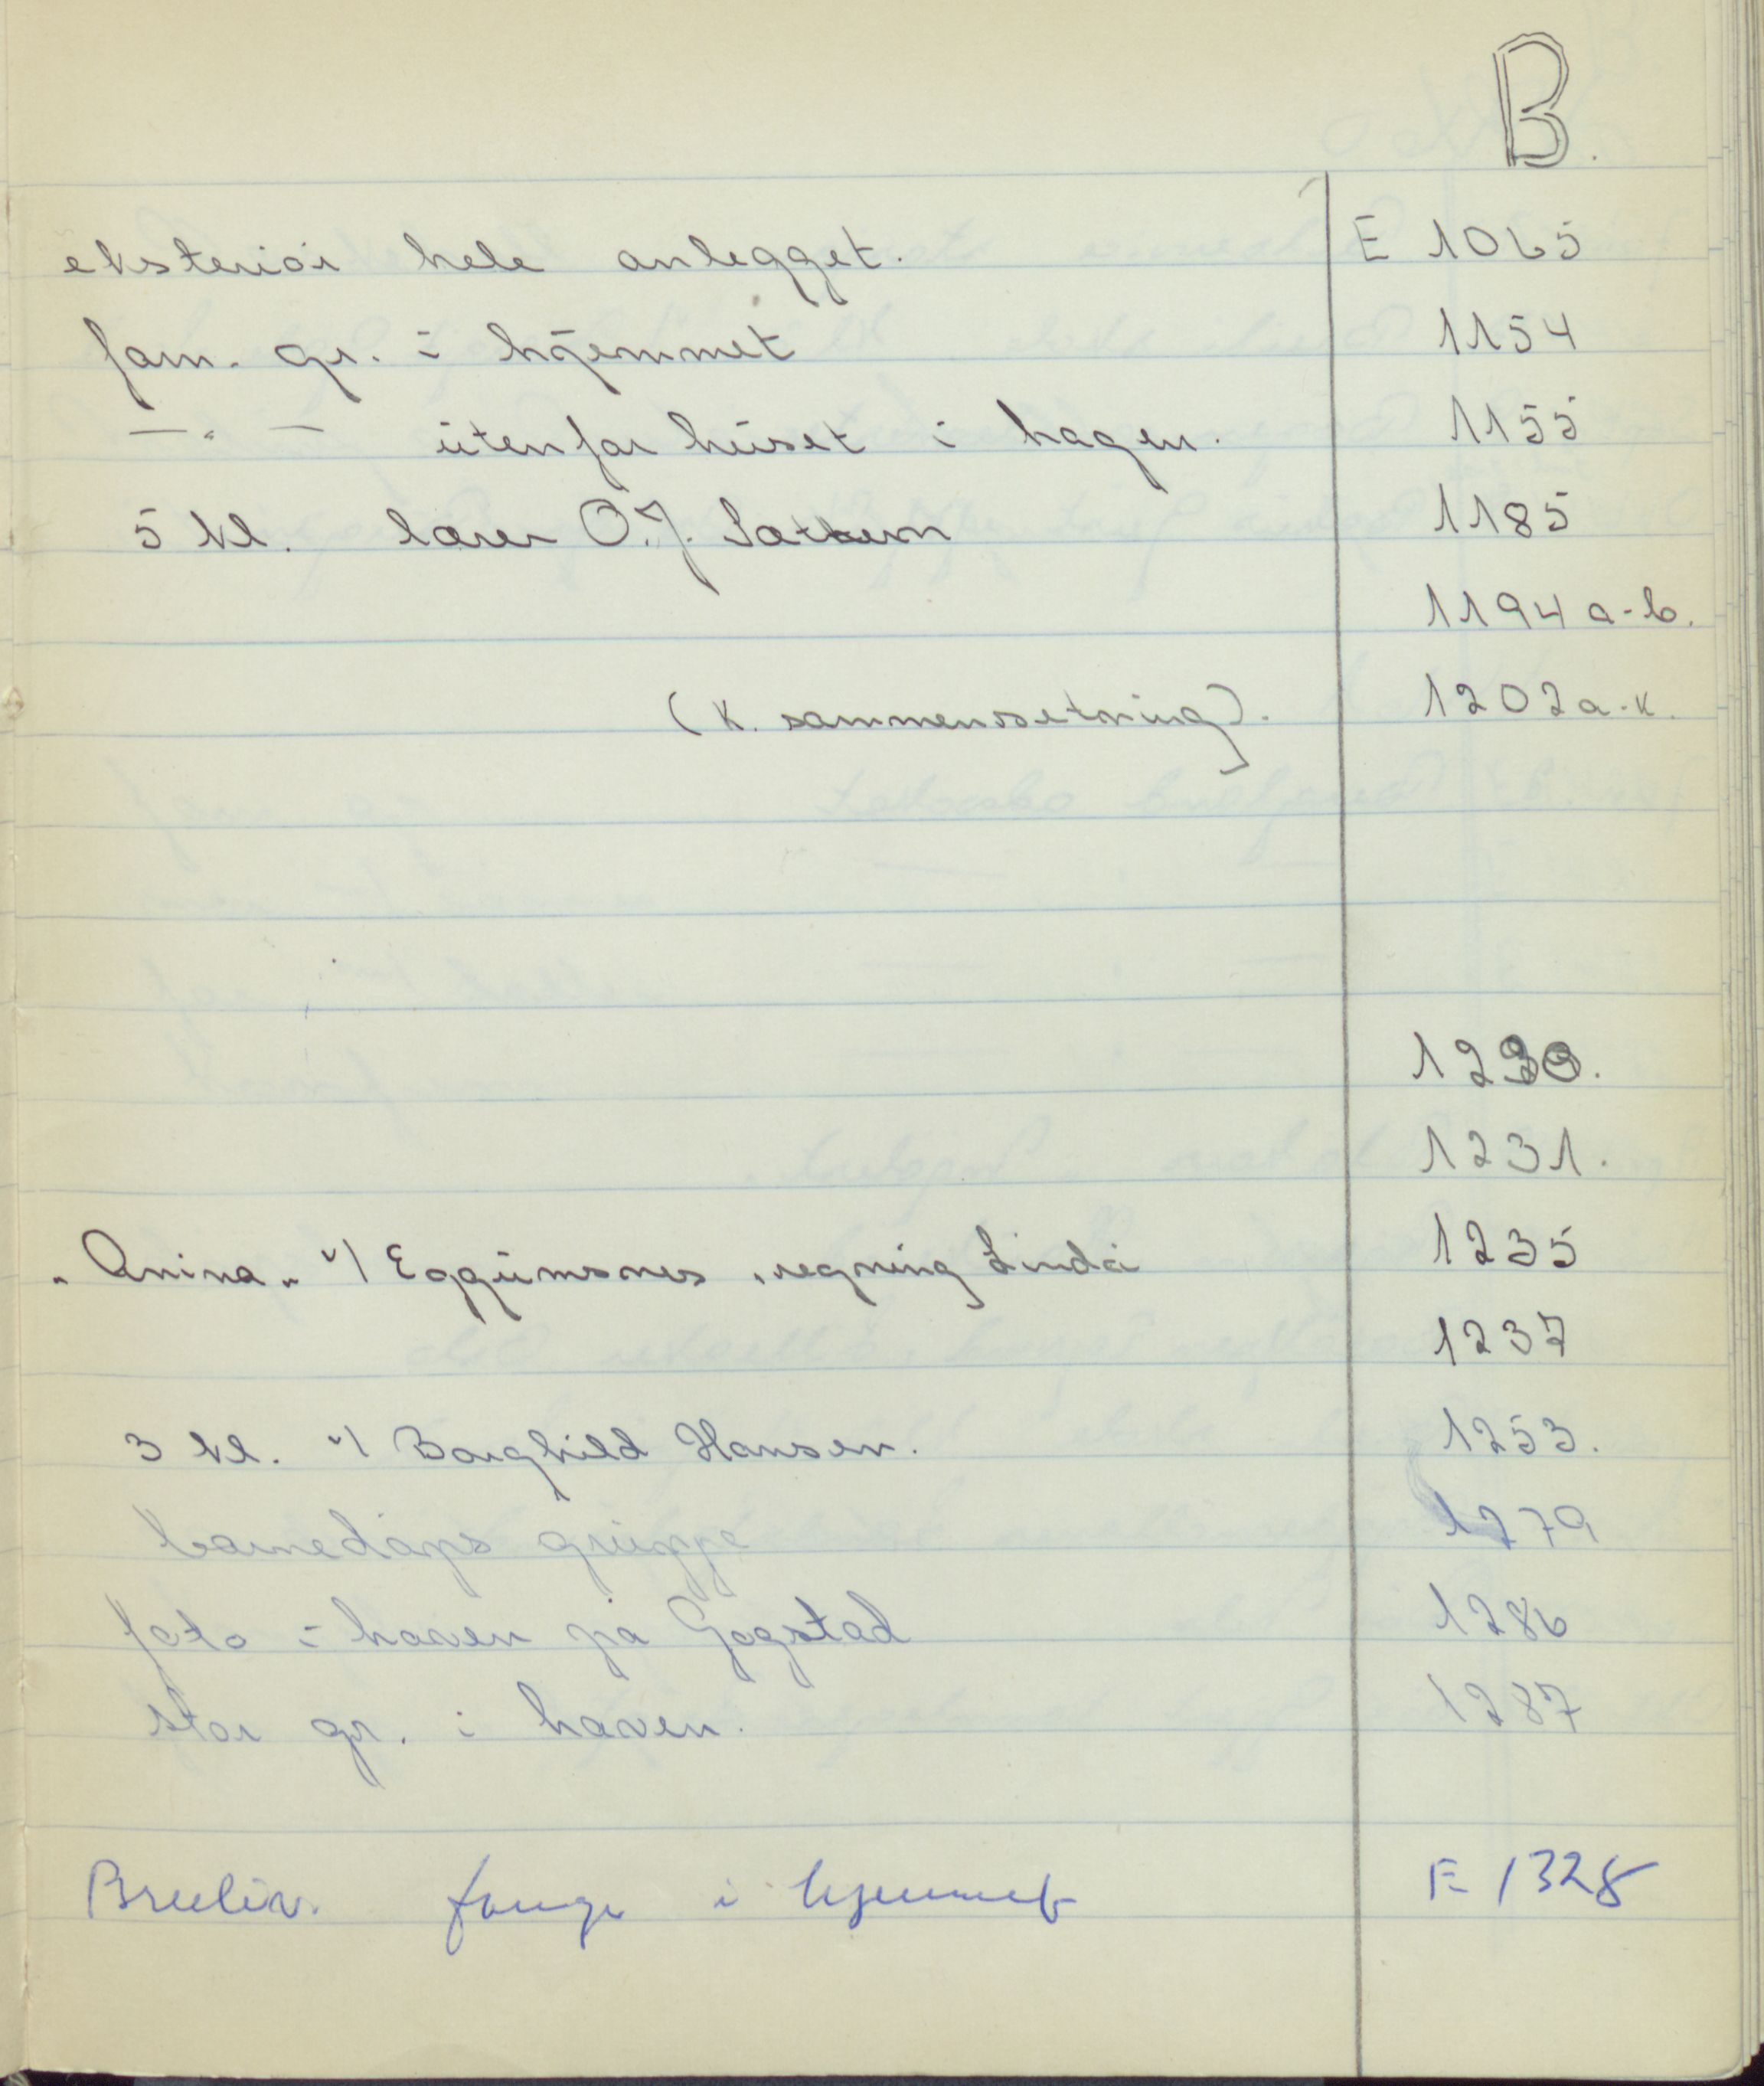 B.
eksteriør hele anlegget. E 1065
fam. gr. i hjemmet 1154
— " — utenfor huset i hagen. 1155
5 kl. lærer O.J. Sættem 1185
1194 a-b.
(K. sammensetning). 1202 a-k.
1230.
1231.
"Anina" v/ Eggumsnes, regning Linda 1235
1237
3 kl. v/ Borghild Hansen. 1253.
barnedåps gruppe 1279
foto i haven på Gogstad 1286
stor gr. i haven. 1287
i hjemmet E 1328